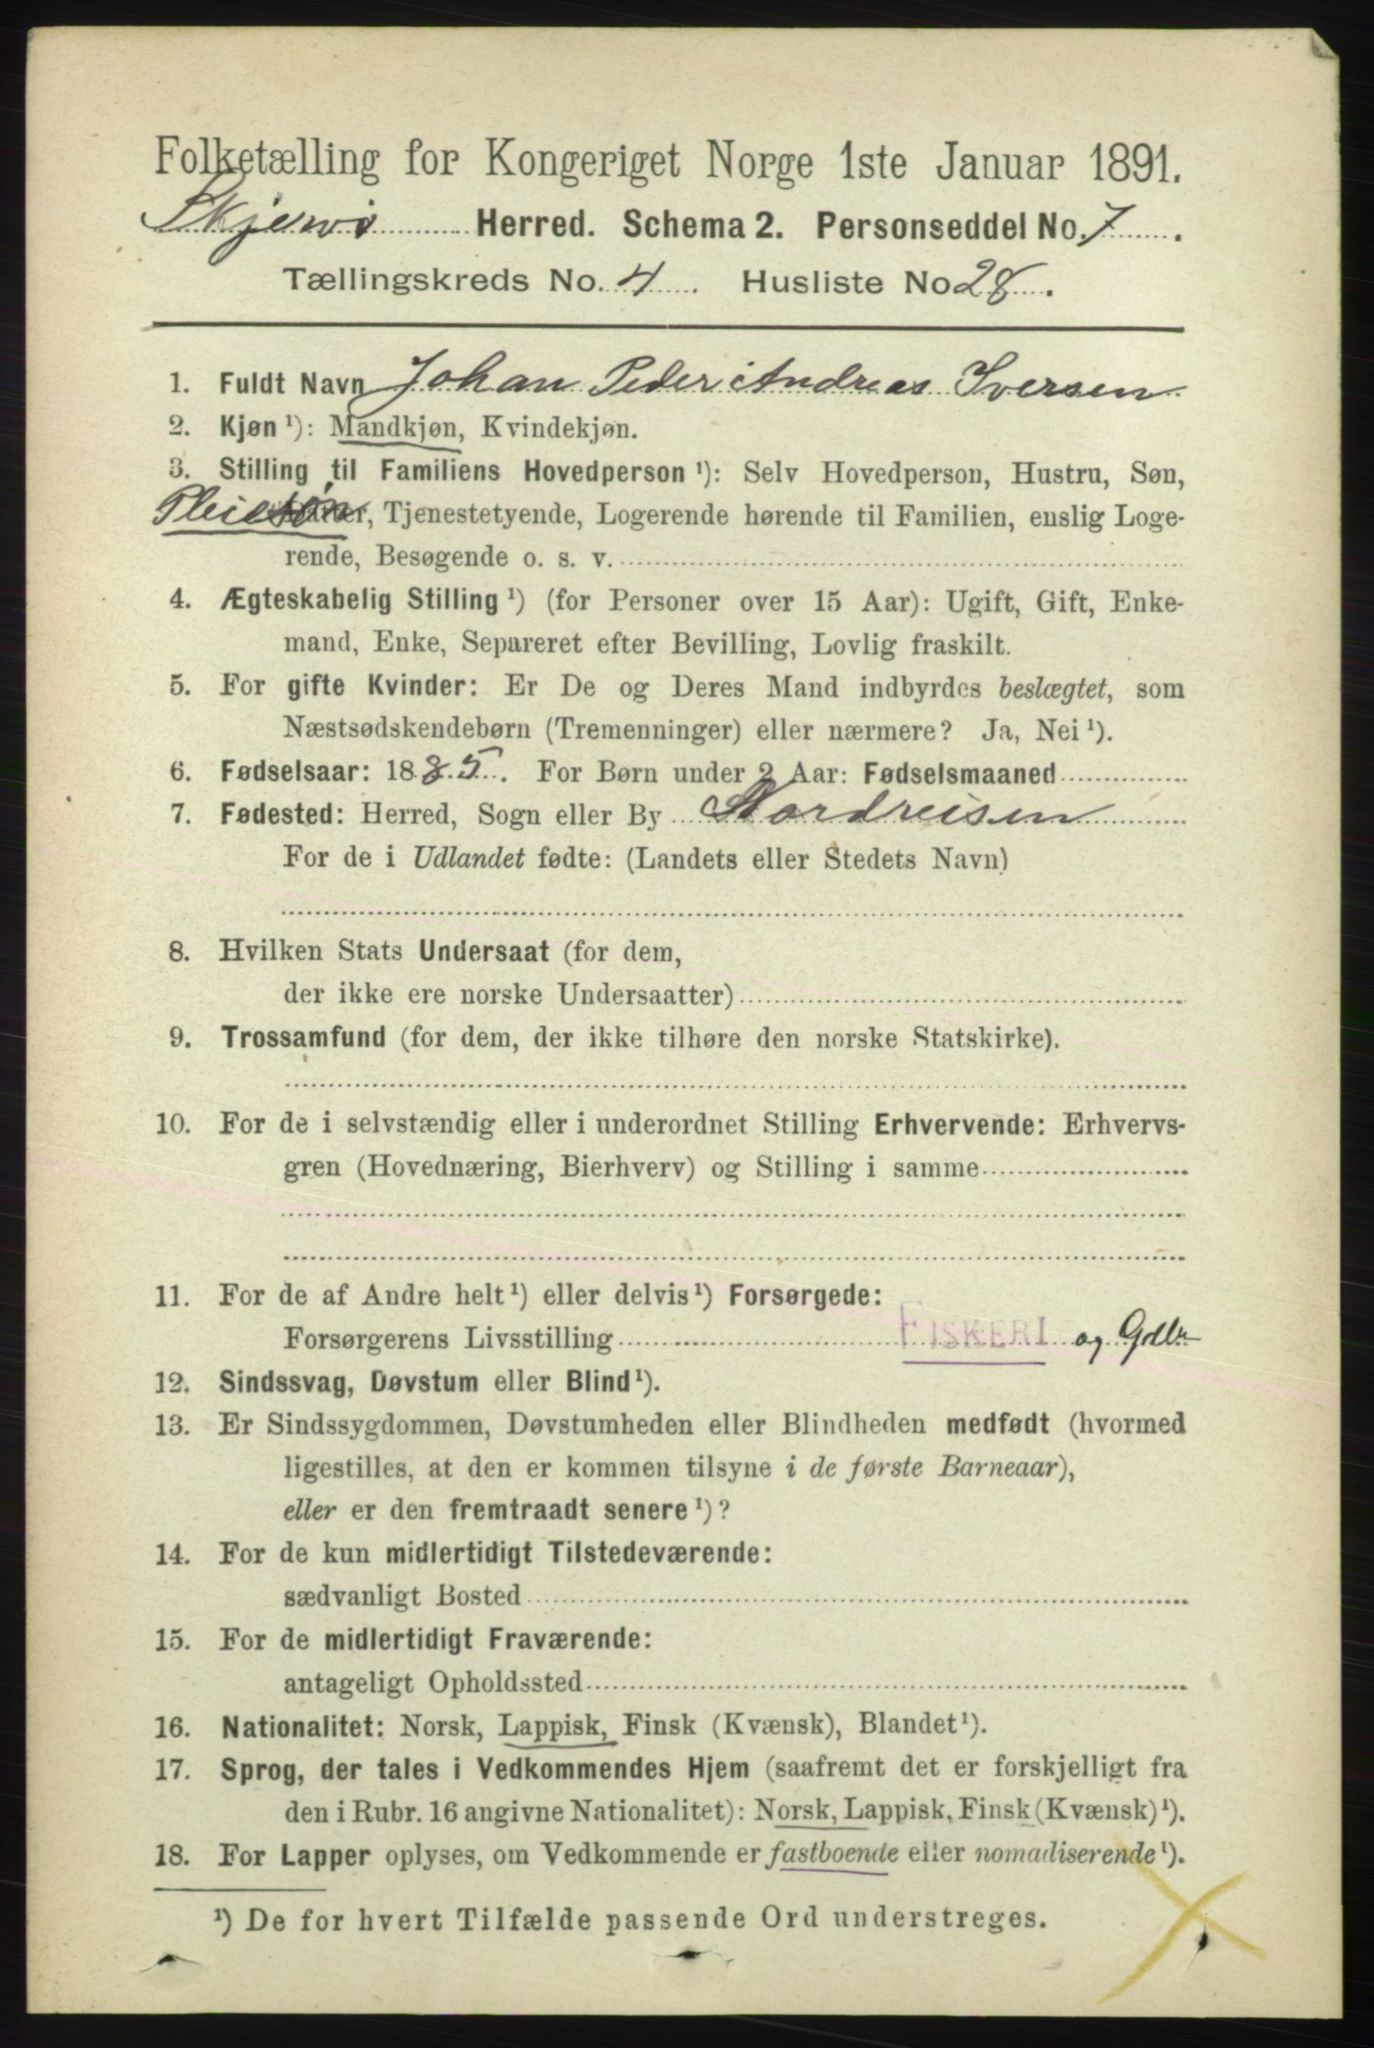 Folketælling for Kongeriget Norge 1ste Januar 1891.
Skjervø Herred. Schema 2. Personseddel No. 7.
Tællingskreds No. 4. Husliste No 28.
1. Fuldt Navn Johan Peder Andreas Iversen
2. Kjøn ¹): Mandkjøn, Kvindekjøn.
3. Stilling til Familiens Hovedperson ¹): Selv Hovedperson, Hustru, Søn,
Pleiesøn, Tjenestetyende, Logerende hørende til Familien, enslig Loge-
rende, Besøgende o. s. v.
4. Ægteskabelig Stilling ¹) (for Personer over 15 Aar): Ugift, Gift, Enke-
mand, Enke, Separeret efter Bevilling, Lovlig fraskilt.
5. For gifte Kvinder: Er De og Deres Mand indbyrdes beslægtet, som
Næstsødskendebørn (Tremenninger) eller nærmere? Ja, Nei ¹).
6. Fødselsaar: 1885. For Børn under 2 Aar: Fødselsmaaned
7. Fødested: Herred, Sogn eller By Nordreisen
For de i Udlandet fødte: (Landets eller Stedets Navn)
8. Hvilken Stats Undersaat (for dem,
der ikke ere norske Undersaatter)
9. Trossamfund (for dem, der ikke tilhøre den norske Statskirke).
10. For de i selvstændig eller i underordnet Stilling Erhvervende: Erhvervs-
gren (Hovednæring, Bierhverv) og Stilling i samme
11. For de af Andre helt ¹) eller delvis ¹) Forsørgede:
Forsørgerens Livsstilling FISKERI og Gdbr
12. Sindssvag, Døvstum eller Blind ¹).
13. Er Sindssygdommen, Døvstumheden eller Blindheden medfødt (hvormed
ligestilles, at den er kommen tilsyne i de første Barneaar),
eller er den fremtraadt senere ¹)?
14. For de kun midlertidigt Tilstedeværende:
sædvanligt Bosted
15. For de midlertidigt Fraværende:
antageligt Opholdssted
16. Nationalitet: Norsk, Lappisk, Finsk (Kvænsk), Blandet ¹).
17. Sprog, der tales i Vedkommendes Hjem (saafremt det er forskjelligt fra
den i Rubr. 16 angivne Nationalitet): Norsk, Lappisk, Finsk (Kvænsk) ¹).
18. For Lapper oplyses, om Vedkommende er fastboende eller nomadiserende ¹).
¹) De for hvert Tilfælde passende Ord understreges.